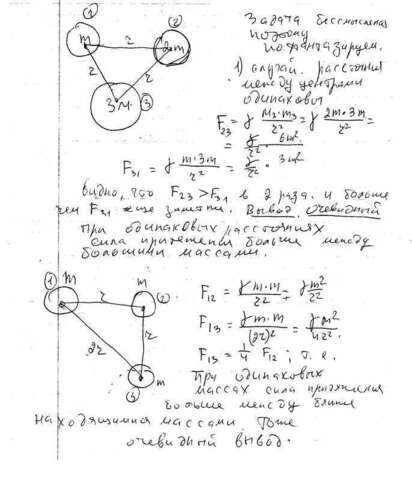 (1)
(2)
m
r
2m
r
r
3m.
(3)
Задача бессмысленная
поэтому
пофантазируем.
1) случай. расстояния
между центрами
одинаковы
F₂₃ = γ m₂·m₃/r² = γ 2m·3m/r² =
= γ/r² · 6m²
F₃₁ = γ m·3m/r² = γ/r² · 3m²
видно, что F₂₃ > F₃₁ в 2 раза. и больше
чем F₂₁ еще заметн. Вывод очевидный
при одинаковых расстояниях
сила притяжения больше между
большими массами.
(1) m
r
m
(2)
r
2r
(3)
m
F₁₂ = γ m·m/r² = γm²/r²
F₁₃ = γ m·m/(2r)² = γm²/4r²
F₁₃ = 1/4 F₁₂; т.е.
При одинаковых
массах сила притяжения
больше между ближе
находящимися массами. Тоже
очевидный вывод.